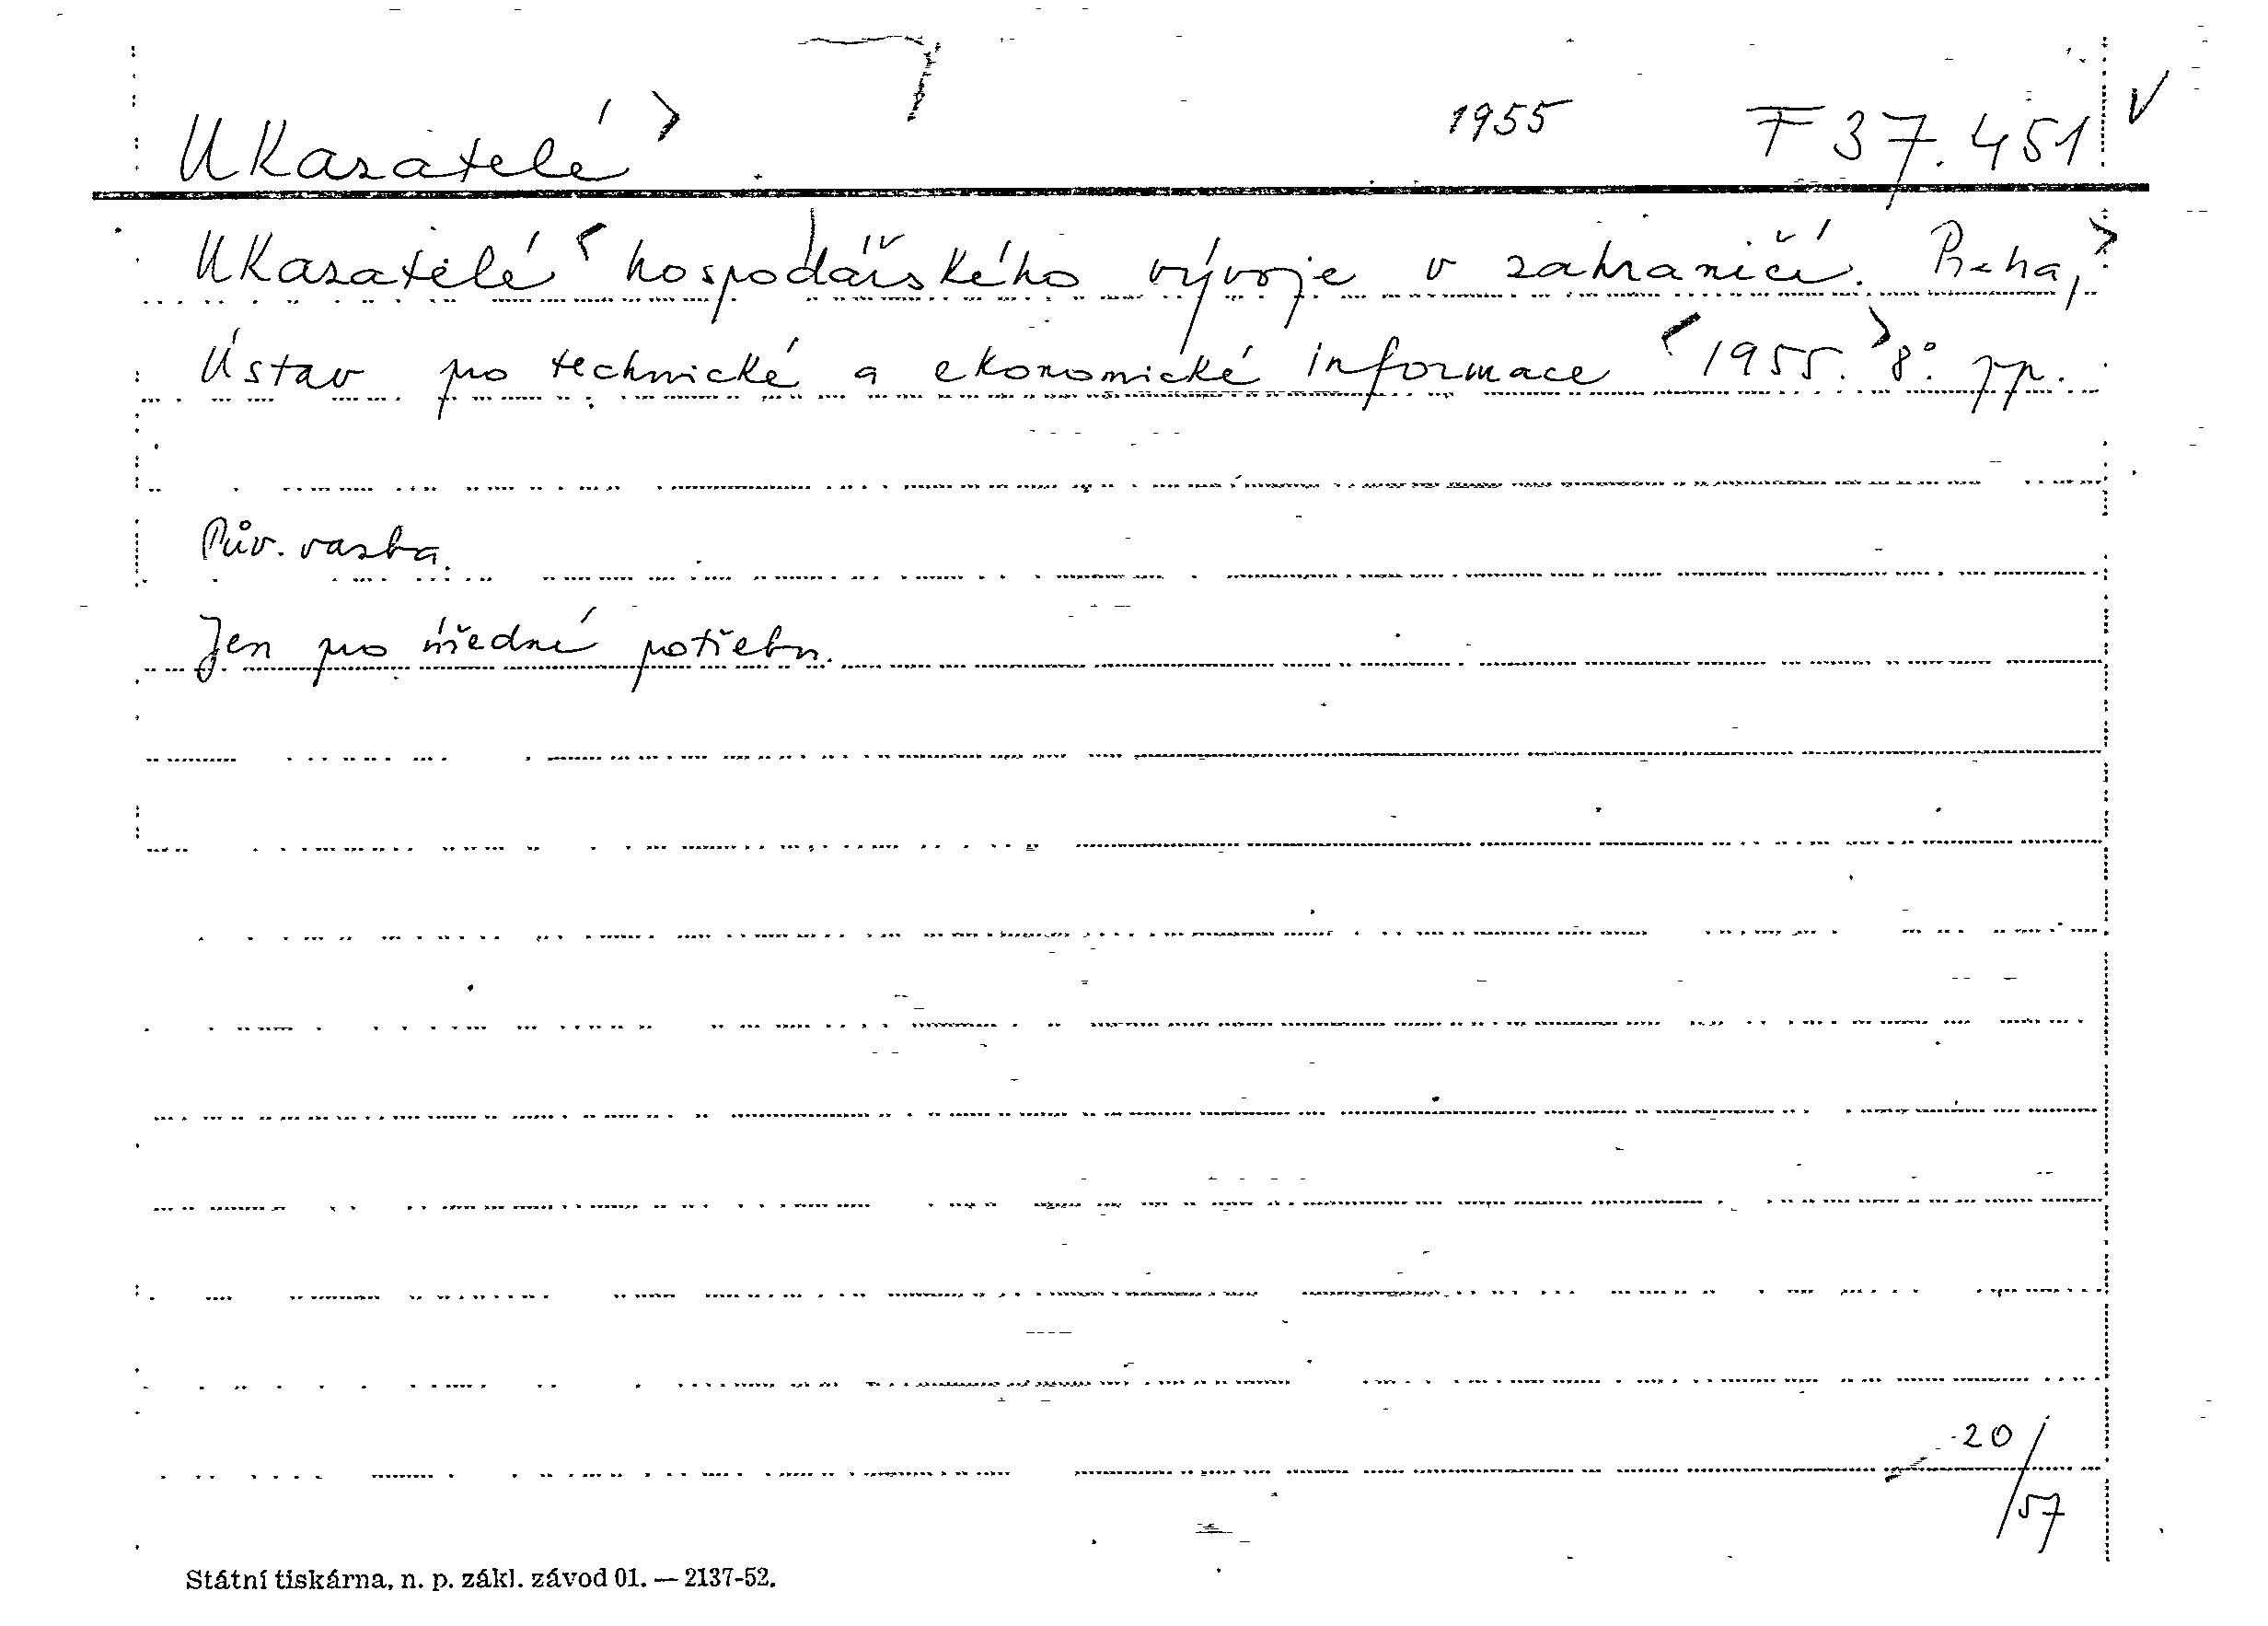 Ukazatelé > 1955 F 37.451 V
Ukazatelé < hospodářského vývoje v zahraničí. Praha, >
Ústav pro technické a ekonomické informace < 1955. > 8°. pp.
Pův. vazba.
Jen pro úřední potřebu.
20/57
Státní tiskárna, n. p. zákl. závod 01. — 2137-52.